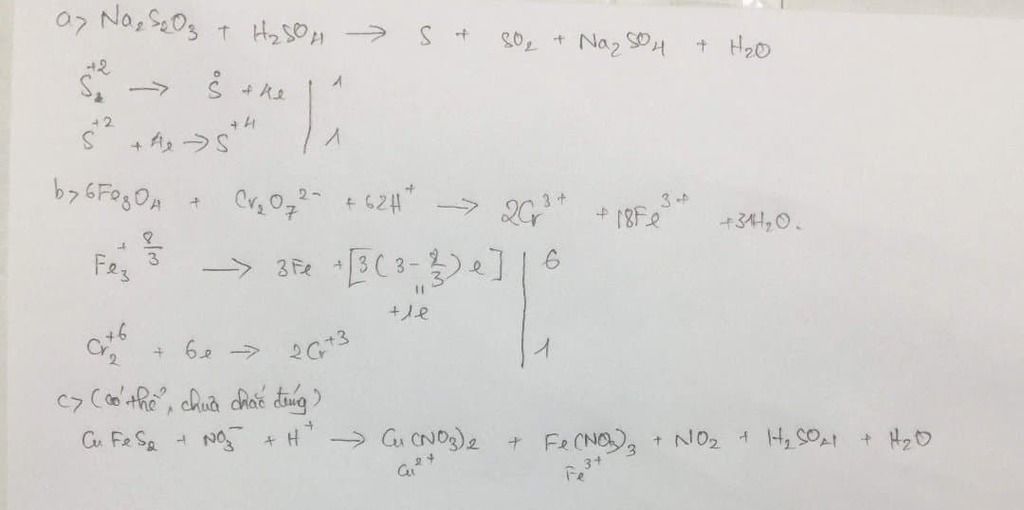 a> Na₂S₂O₃ + H₂SO₄ → S + SO₂ + Na₂SO₄ + H₂O
S₂⁺² → S⁰ + 4e | 1
S⁺² + 4e → S⁺⁴ | 1
b> 6Fe₃O₄ + Cr₂O₇²⁻ + 62H⁺ → 2Cr³⁺ + 18Fe³⁺ + 31H₂O.
Fe₃⁺⁸/³ → 3Fe + [3(3 - 8/3)e] | 6
"
+1e
Cr₂⁺⁶ + 6e → 2Cr⁺³ | 1
c> (có thể, chưa chắc đúng)
CuFeS₂ + NO₃⁻ + H⁺ → Cu(NO₃)₂ + Fe(NO₃)₃ + NO₂ + H₂SO₄ + H₂O
Cu²⁺ Fe³⁺